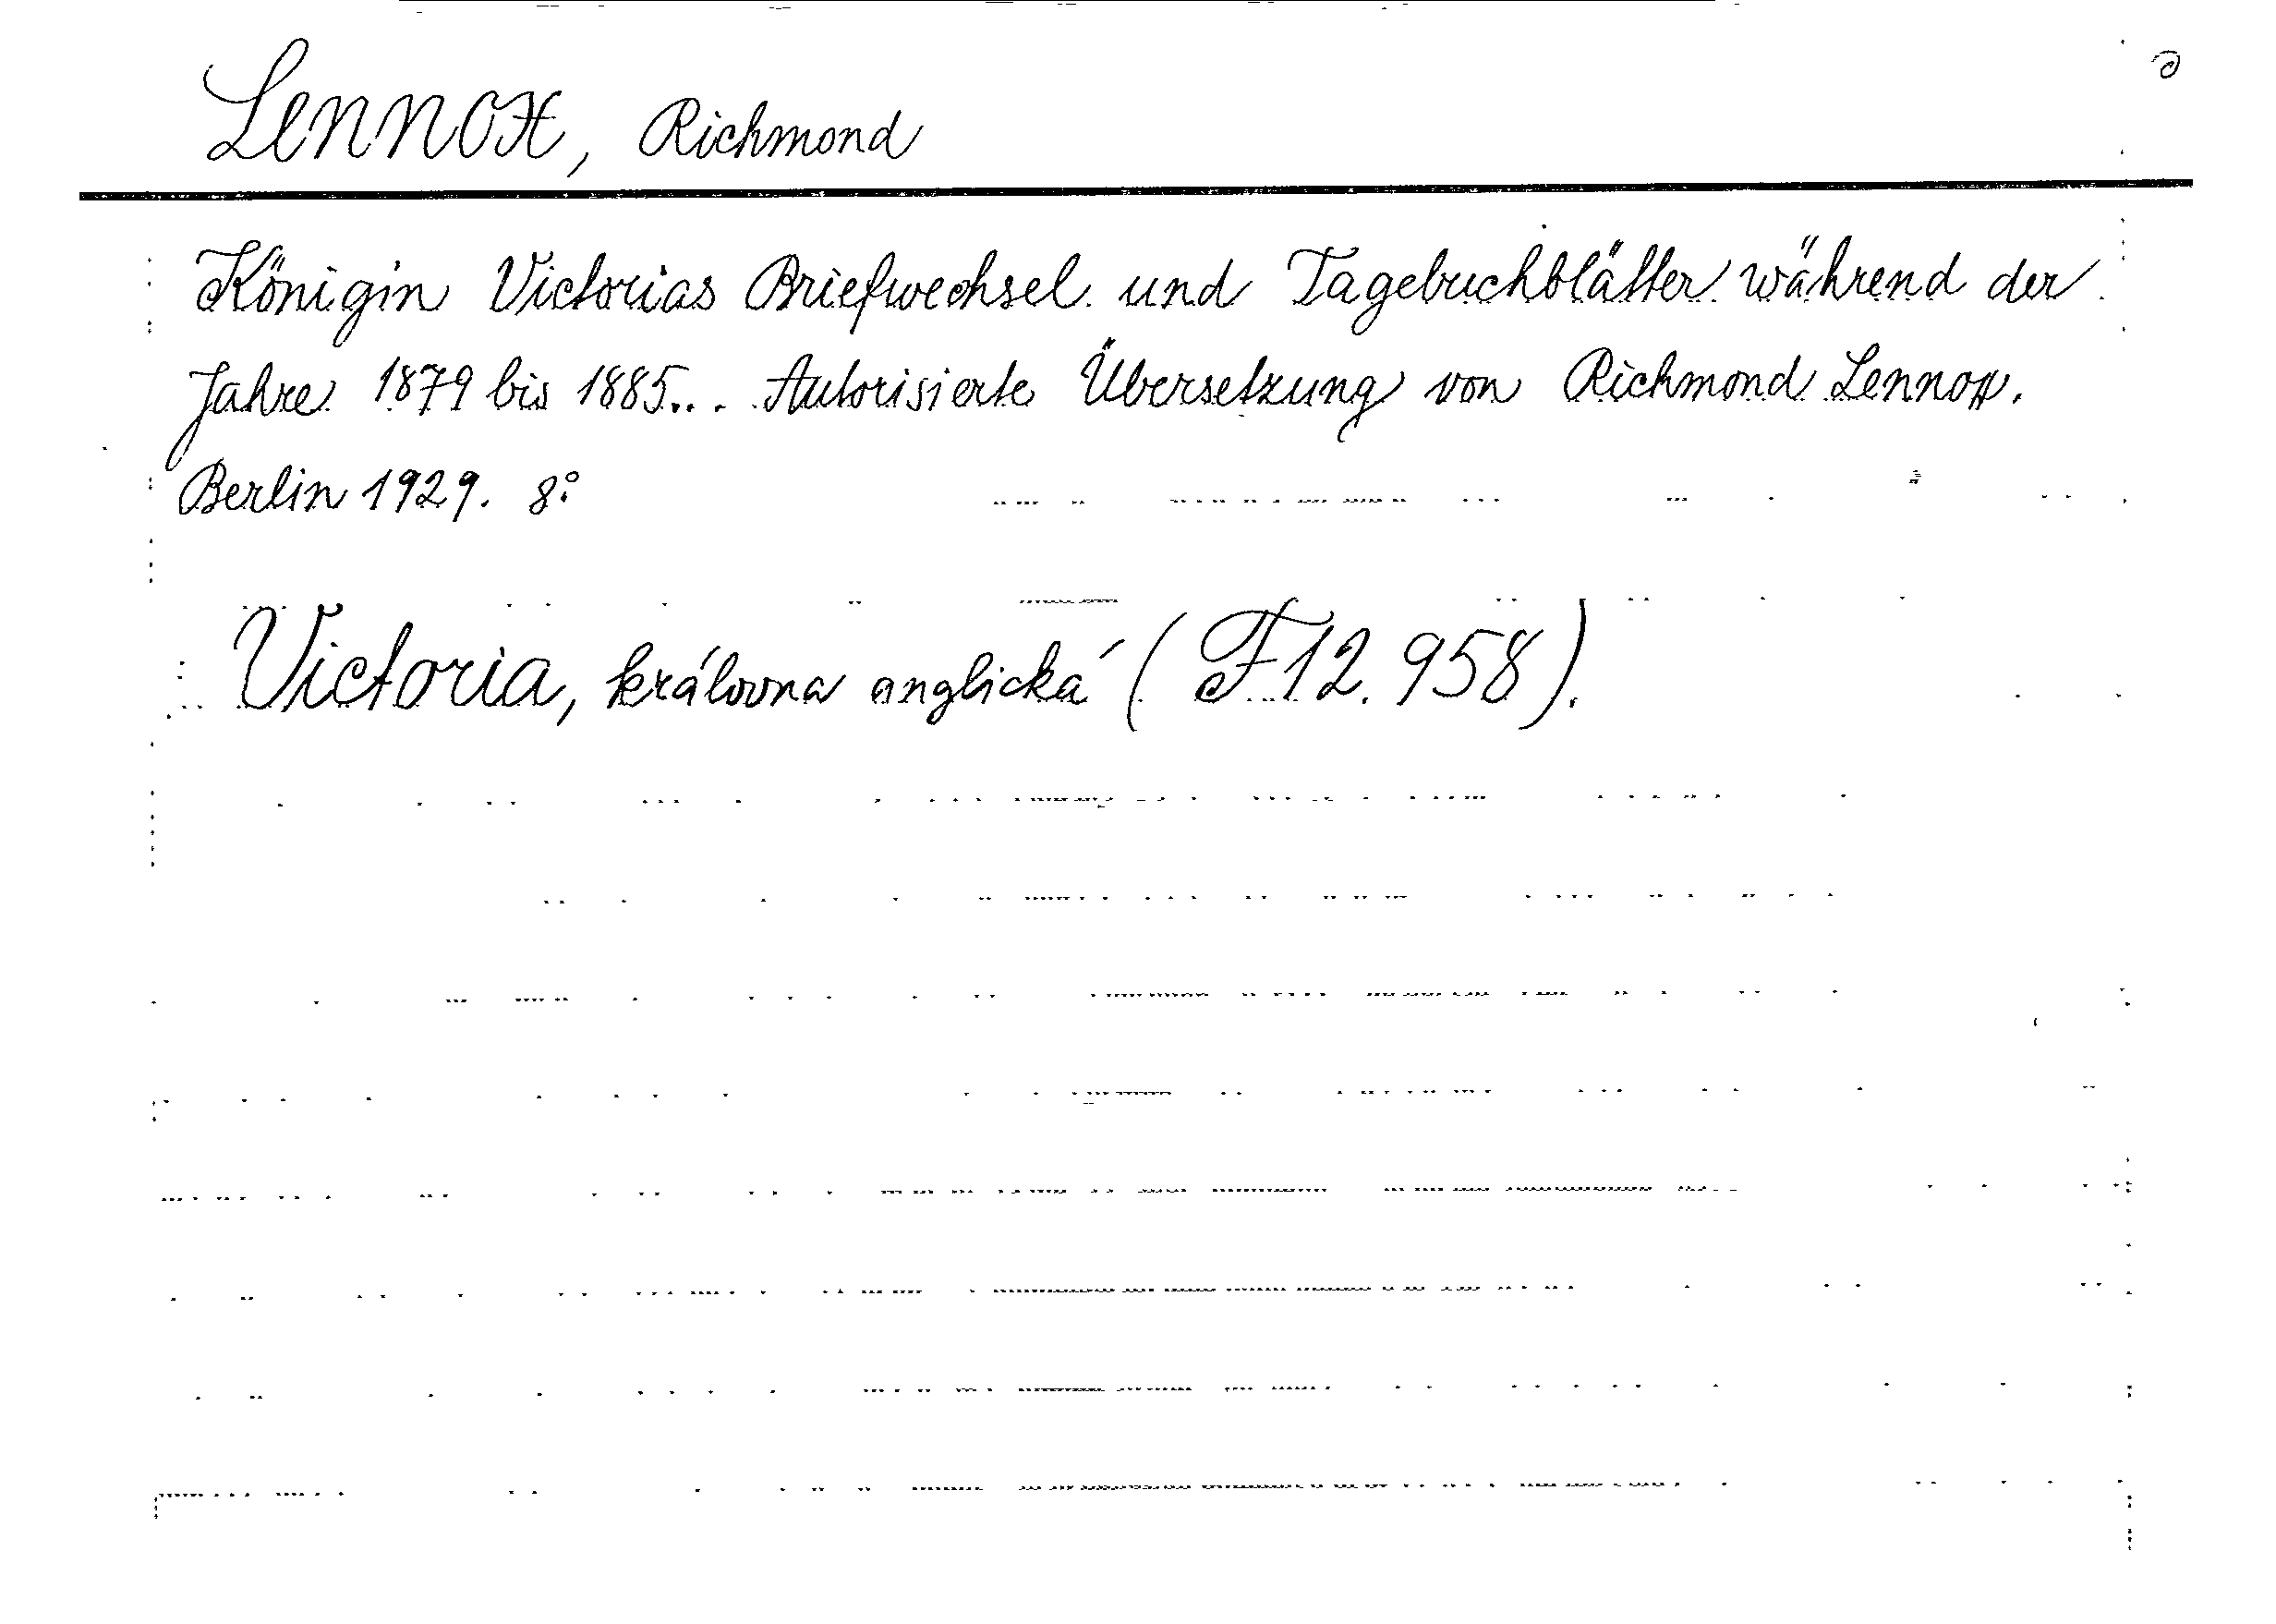 Lennox, Richmond
Königin Victorias Briefwechsel und Tagebuchblätter während der
Jahre 1879 bis 1885... Autorisierte Übersetzung von Richmond Lennox.
Berlin 1929. 8°.
Victoria, královna anglická (F 12.958).